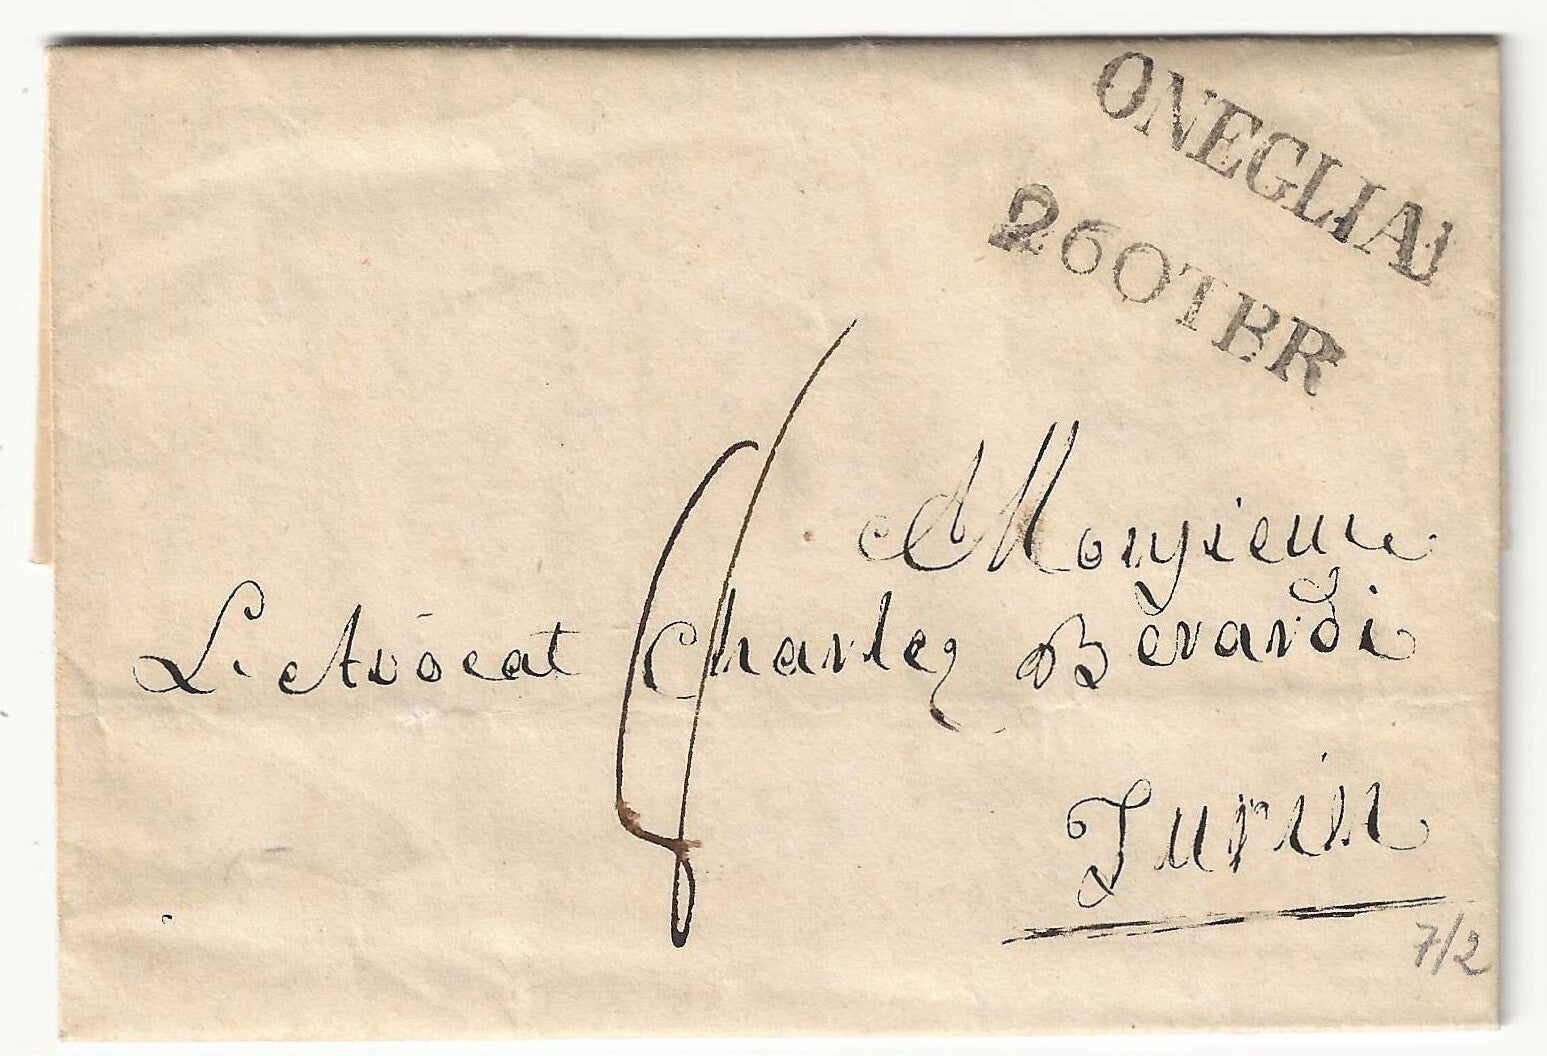 ONEGLIA
26 OTBR
A Monsieur
L'Avocat Charles Bérardi
Turin
7/2